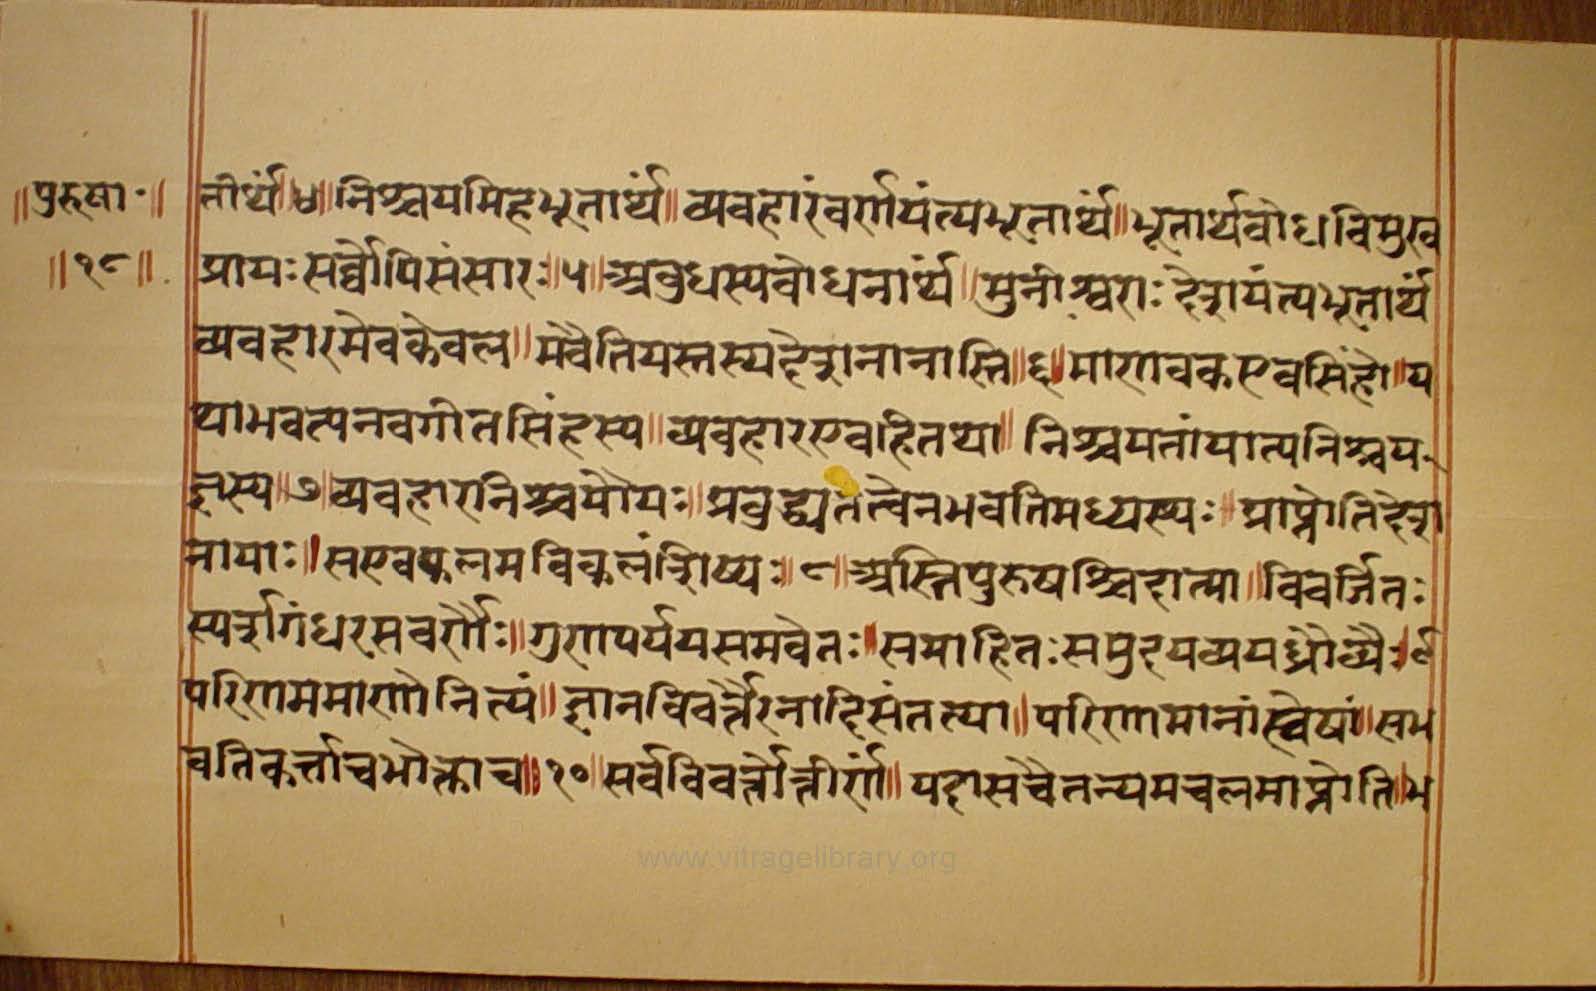 ॥पुरुषा॰॥
॥१८॥
तीर्थं॥४॥निश्चयमिहभूतार्थं॥व्यवहारंवर्णयंत्यभूतार्थं॥भूतार्थबोधविमुख
प्रायःसर्व्वोपिसंसारः॥५॥अबुधस्यबोधनार्थं॥मुनीश्वराःदेशयंत्यभूतार्थं
व्यवहारमेवकेवल॥मवैतियस्तस्यदेशनानास्ति॥६॥माणवकएवसिंहो॥य
थाभवत्यनवगीतसिंहस्य॥व्यवहारएवहितथा॥निश्चयतांयात्यनिश्चय-
ज्ञस्य॥७॥व्यवहारनिश्चयौयः॥प्रबुद्ध्यतत्वेनभवतिमध्यस्थः॥प्राप्नोतिदेश
नायाः॥सएवफलमविकलंशिष्यः॥८॥अस्तिपुरुषश्चिदात्मा॥विवर्जितः
स्पर्शगंधरसवर्णैः॥गुणपर्ययसमवेतः॥समाहितःसमुदयव्ययध्रौव्यैः॥९
परिणममाणोनित्यं॥ज्ञानविवर्त्तैरनादिसंतत्या॥परिणामानांस्वेषां॥सभ
वतिकर्त्ताचभोक्ताच॥१०॥सर्वविवर्त्तोत्तीर्णं॥यदासचैतन्यमचलमाप्नोति॥भ
www.vitragelibrary.org